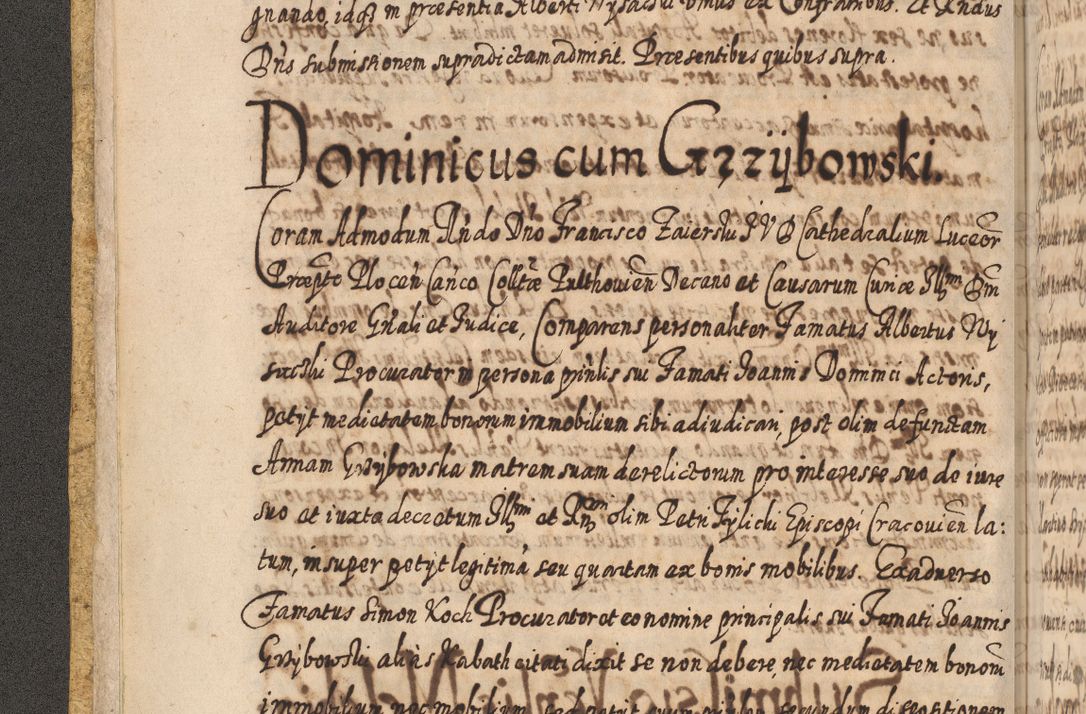 gnando, idq3 in præsentia Alberti
Dn̄s submissionem supradictam admisit. Præsentibus quibus supra.
Dominicus cum Grzÿbowski.
Coram Admodum Rn̄do Dn̄o Francisco Zaierski IVD Cathedralium Luceor̄
Præp̄to Plocen̄ Can̄co Coll̄tæ Pulthovien̄ Decano et Causarum Curiæ Ill3mi
Auditore Gn̄ali et Iudice, Comparens personaliter Famatus Albertus Wy
sicki Procurator in persona prin̄lis sui Famati Ioannis Dominici Actoris,
petÿt medietatem bonorum immobilium sibi adiudicari, post olim defunctam
Annam Grzÿbowska matrem suam derelictorum pro interesse suo de iure
suo et iuxta decretum Ill3mi et Rn3mi olim Petri Tÿlicki Episcopi Cracovien̄ la:
tum, insuper petÿt legitimā seu quartam ex bonis mobilibus. Exadverso
Famatus Simon Koch Procurator et eo nomine principalis sui Famati Ioannis
Grzÿbowski aliàs Kabath citati dixit se non debere, nec medietatem bonorū
immobilium nec mobilium, sed petit secundum dispositionem